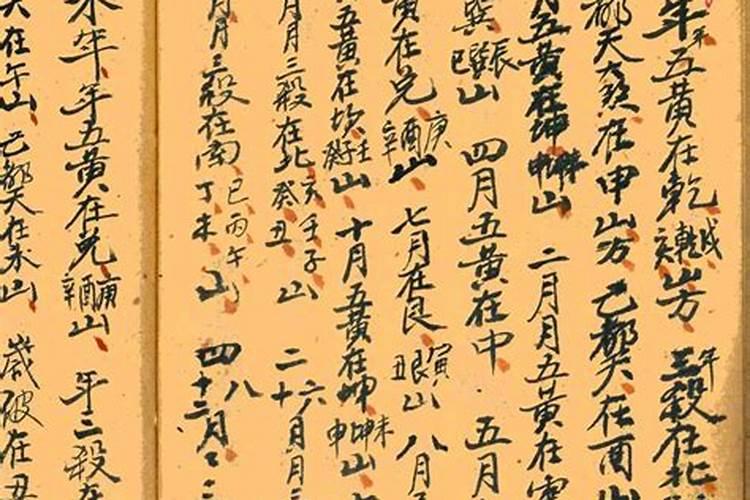 年五黄在乾戌乾亥山方 年三殺在北
都天大煞在申山方 己都天在酉山
月五黄在坤山 二月月五黄在震
巽辰巽巳山 四月五黄在中 五月
黄在兑庚酉辛山 七月在艮寅艮丑山 八月
五黄在坎壬子癸山 十月五黄在坤未坤申山
月月三殺在北亥壬子癸丑山 二六十月月三
月月三殺在南巳丙午丁未山 四八十二月
未年年五黄在兑庚酉辛山 年三殺在
天在午山 己都天在未山 歲破在丑